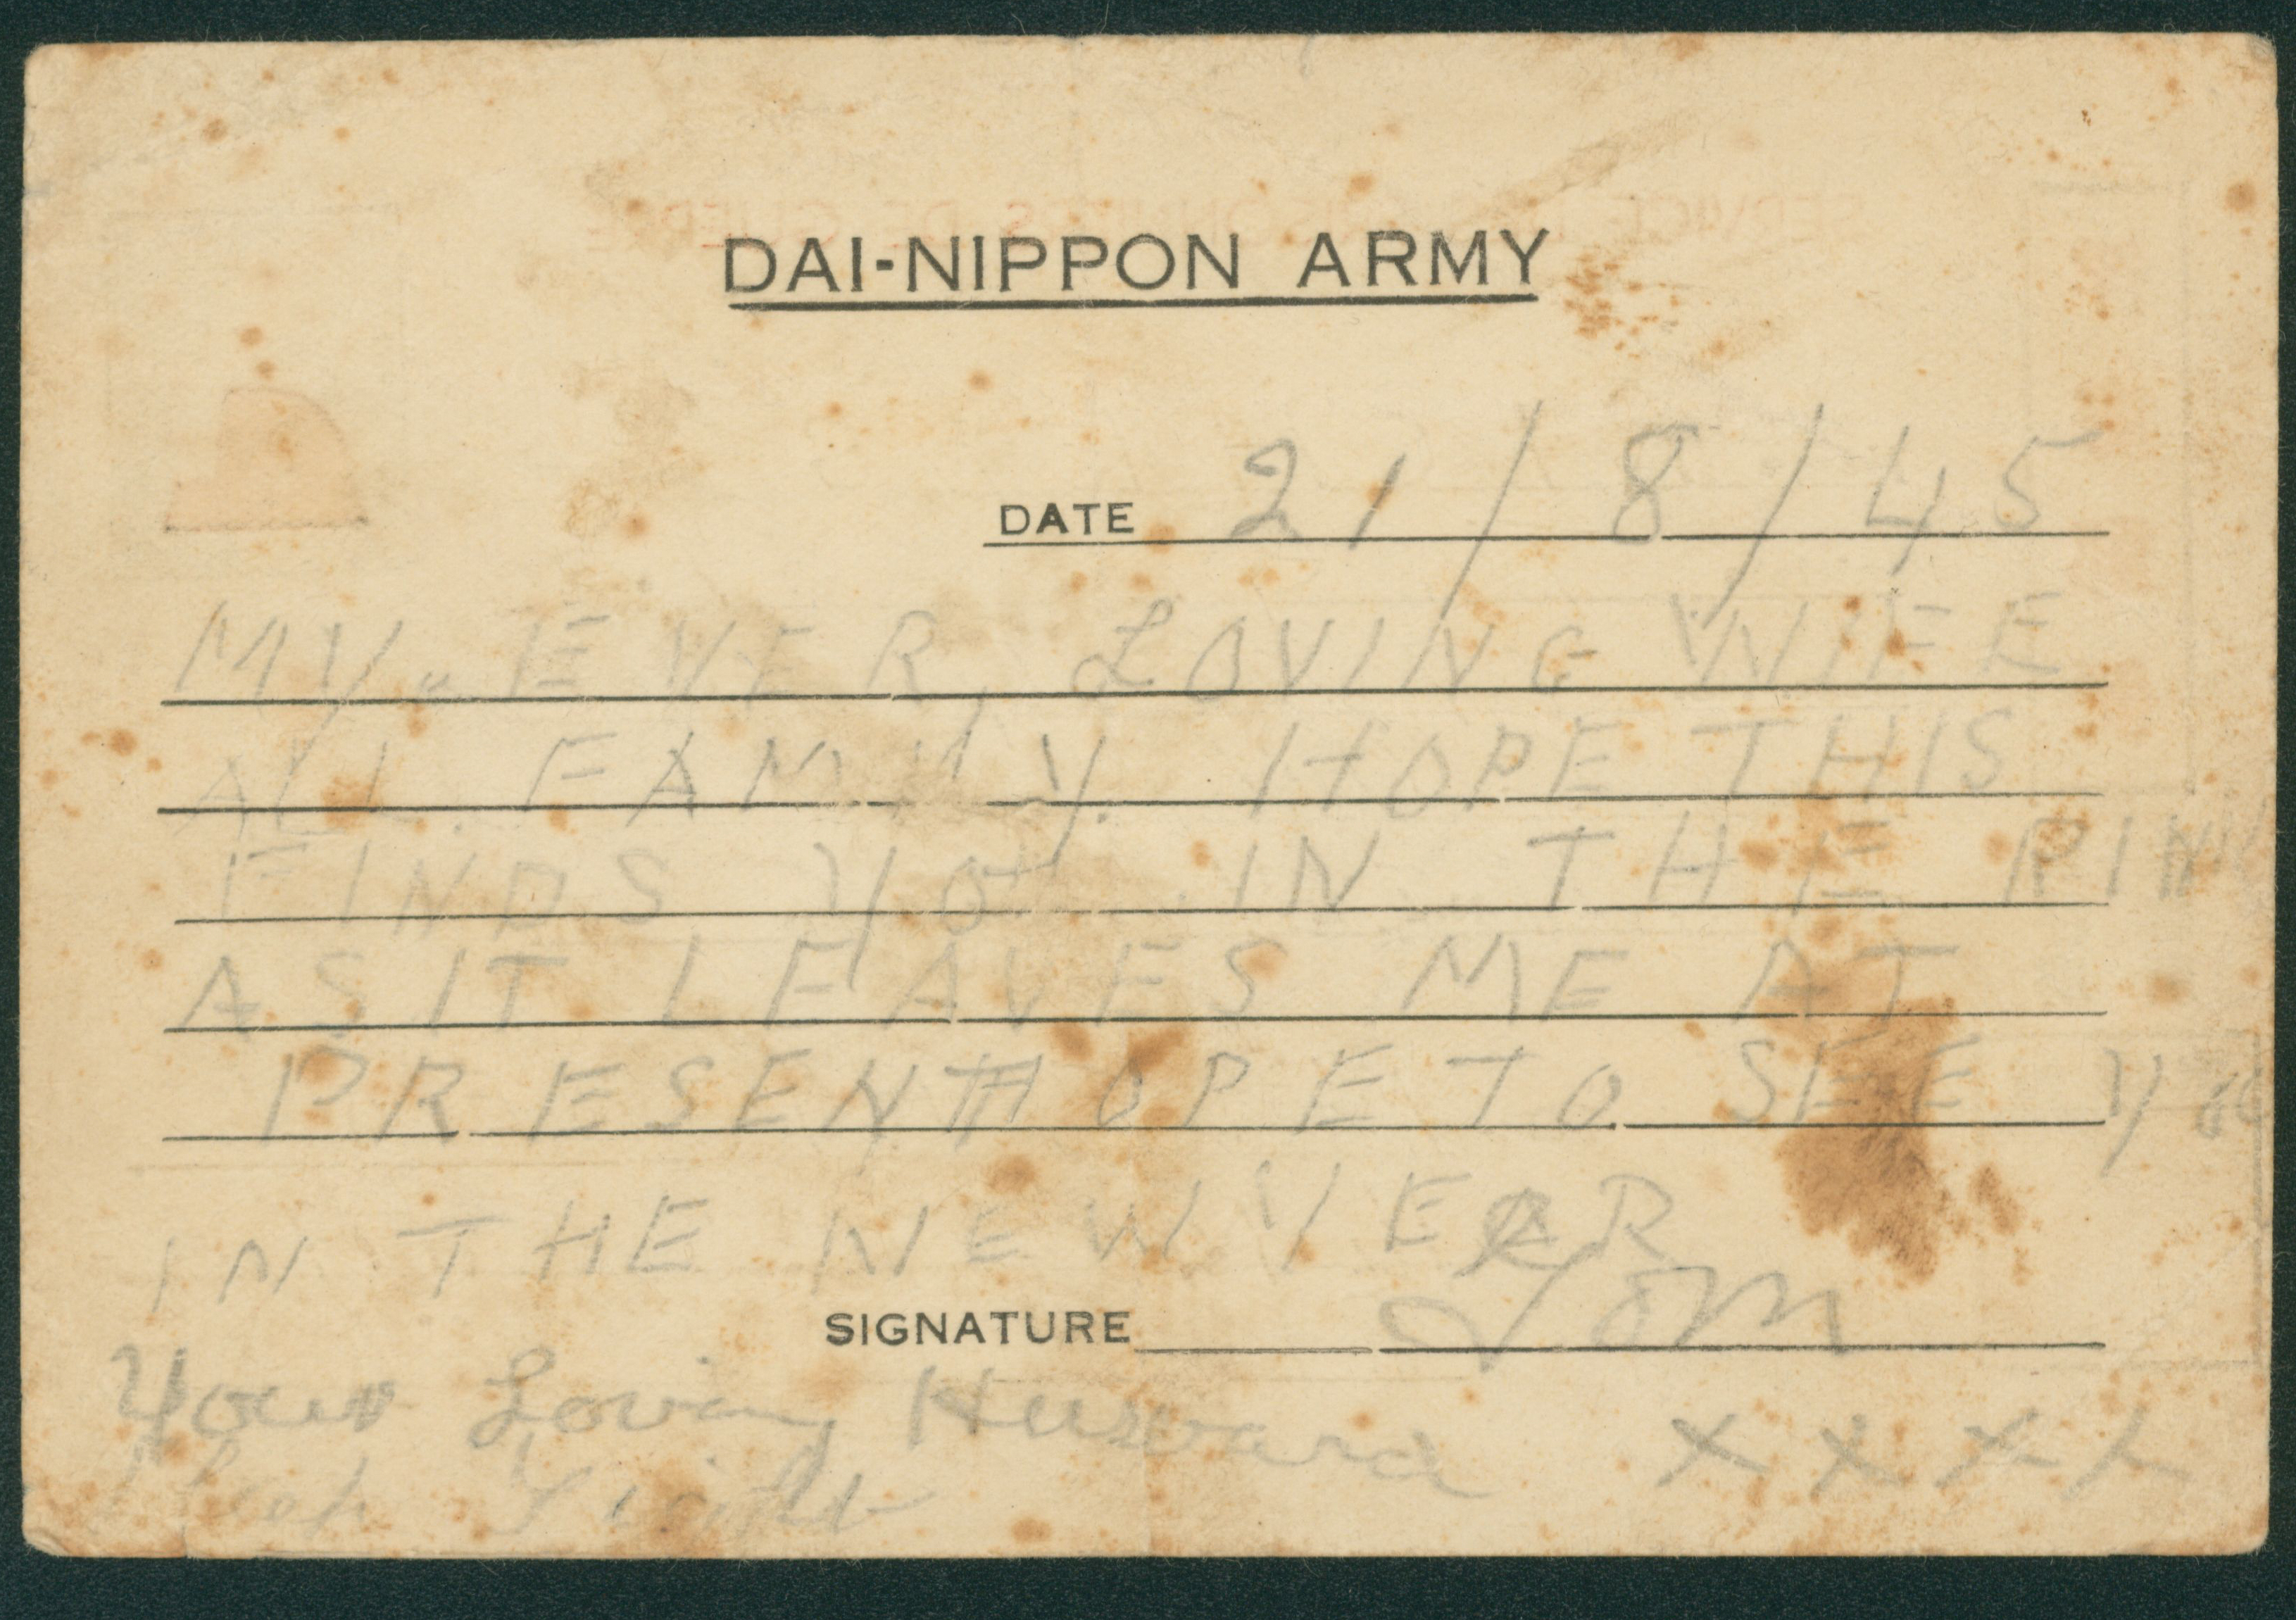 DAI-NIPPON ARMY
DATE 21/8/45
MY EVER, LOVING WIFE
ALL. FAMILY. HOPE THIS
FINDS YOU IN THE PINK
AS IT LEAVES ME AT
PRESENT HOPE TO SEE YOU
IN THE NEW YEAR
SIGNATURE Tom
Your Loving Husband x x x x